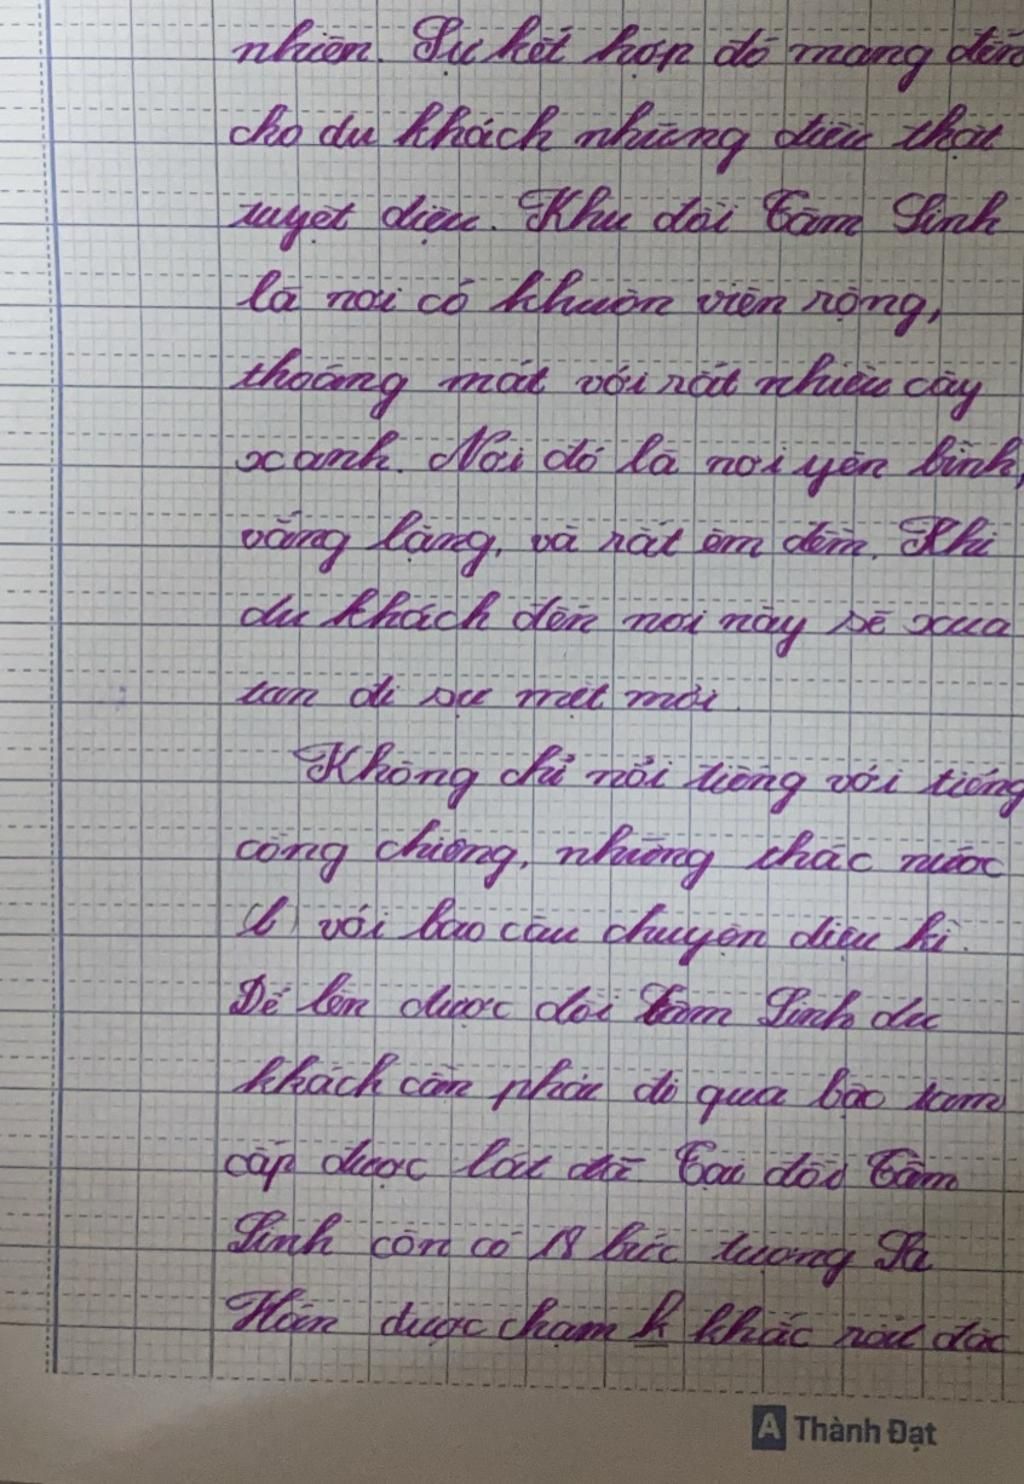 nhiên. Sự kết hợp đó mang đến
cho du khách những điều thật
tuyệt diệu. Khu đồi Tâm Linh
là nơi có khuôn viên rộng,
thoáng mát với rất nhiều cây
xanh. Nơi đó là nơi yên bình,
vắng lặng, và rất êm đềm. Khi
du khách đến nơi này sẽ xua
tan đi sự mệt mỏi.
Không chỉ nổi tiếng với tiếng
cồng chiêng, những thác nước
với bao câu chuyện diệu kì.
Để lên được đồi Tâm Linh du
khách cần phải đi qua bảo tam
cấp được lát đá. Tại đồi Tâm
Linh còn có 18 bức tượng La
Hán được chạm k khắc rất đặc
A Thành Đạt